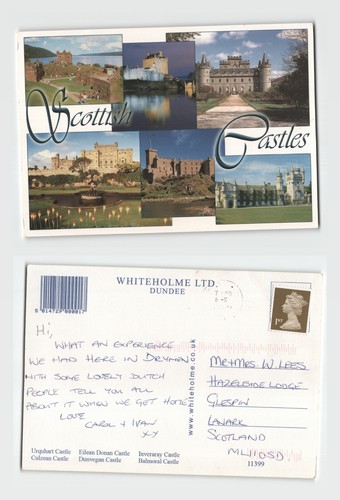 Scottish
Castles
WHITEHOLME LTD.
DUNDEE
5 014729 000017
1ST
Hi,
WHAT AN EXPERIENCE
WE HAD HERE IN DRYMEN
WITH SOME LOVELY DUTCH
PEOPLE TELL YOU ALL
ABOUT IT WHEN WE GET HOME
LOVE
CAROL + IVAN
XX
www.whiteholme.co.uk
MR+MRS. W. LEES
HAZELSIDE LODGE
GLESPIN
LANARK
SCOTLAND
ML11 0SD
Urquhart Castle Eilean Donan Castle Inveraray Castle
Culzean Castle Dunvegan Castle Balmoral Castle
11399